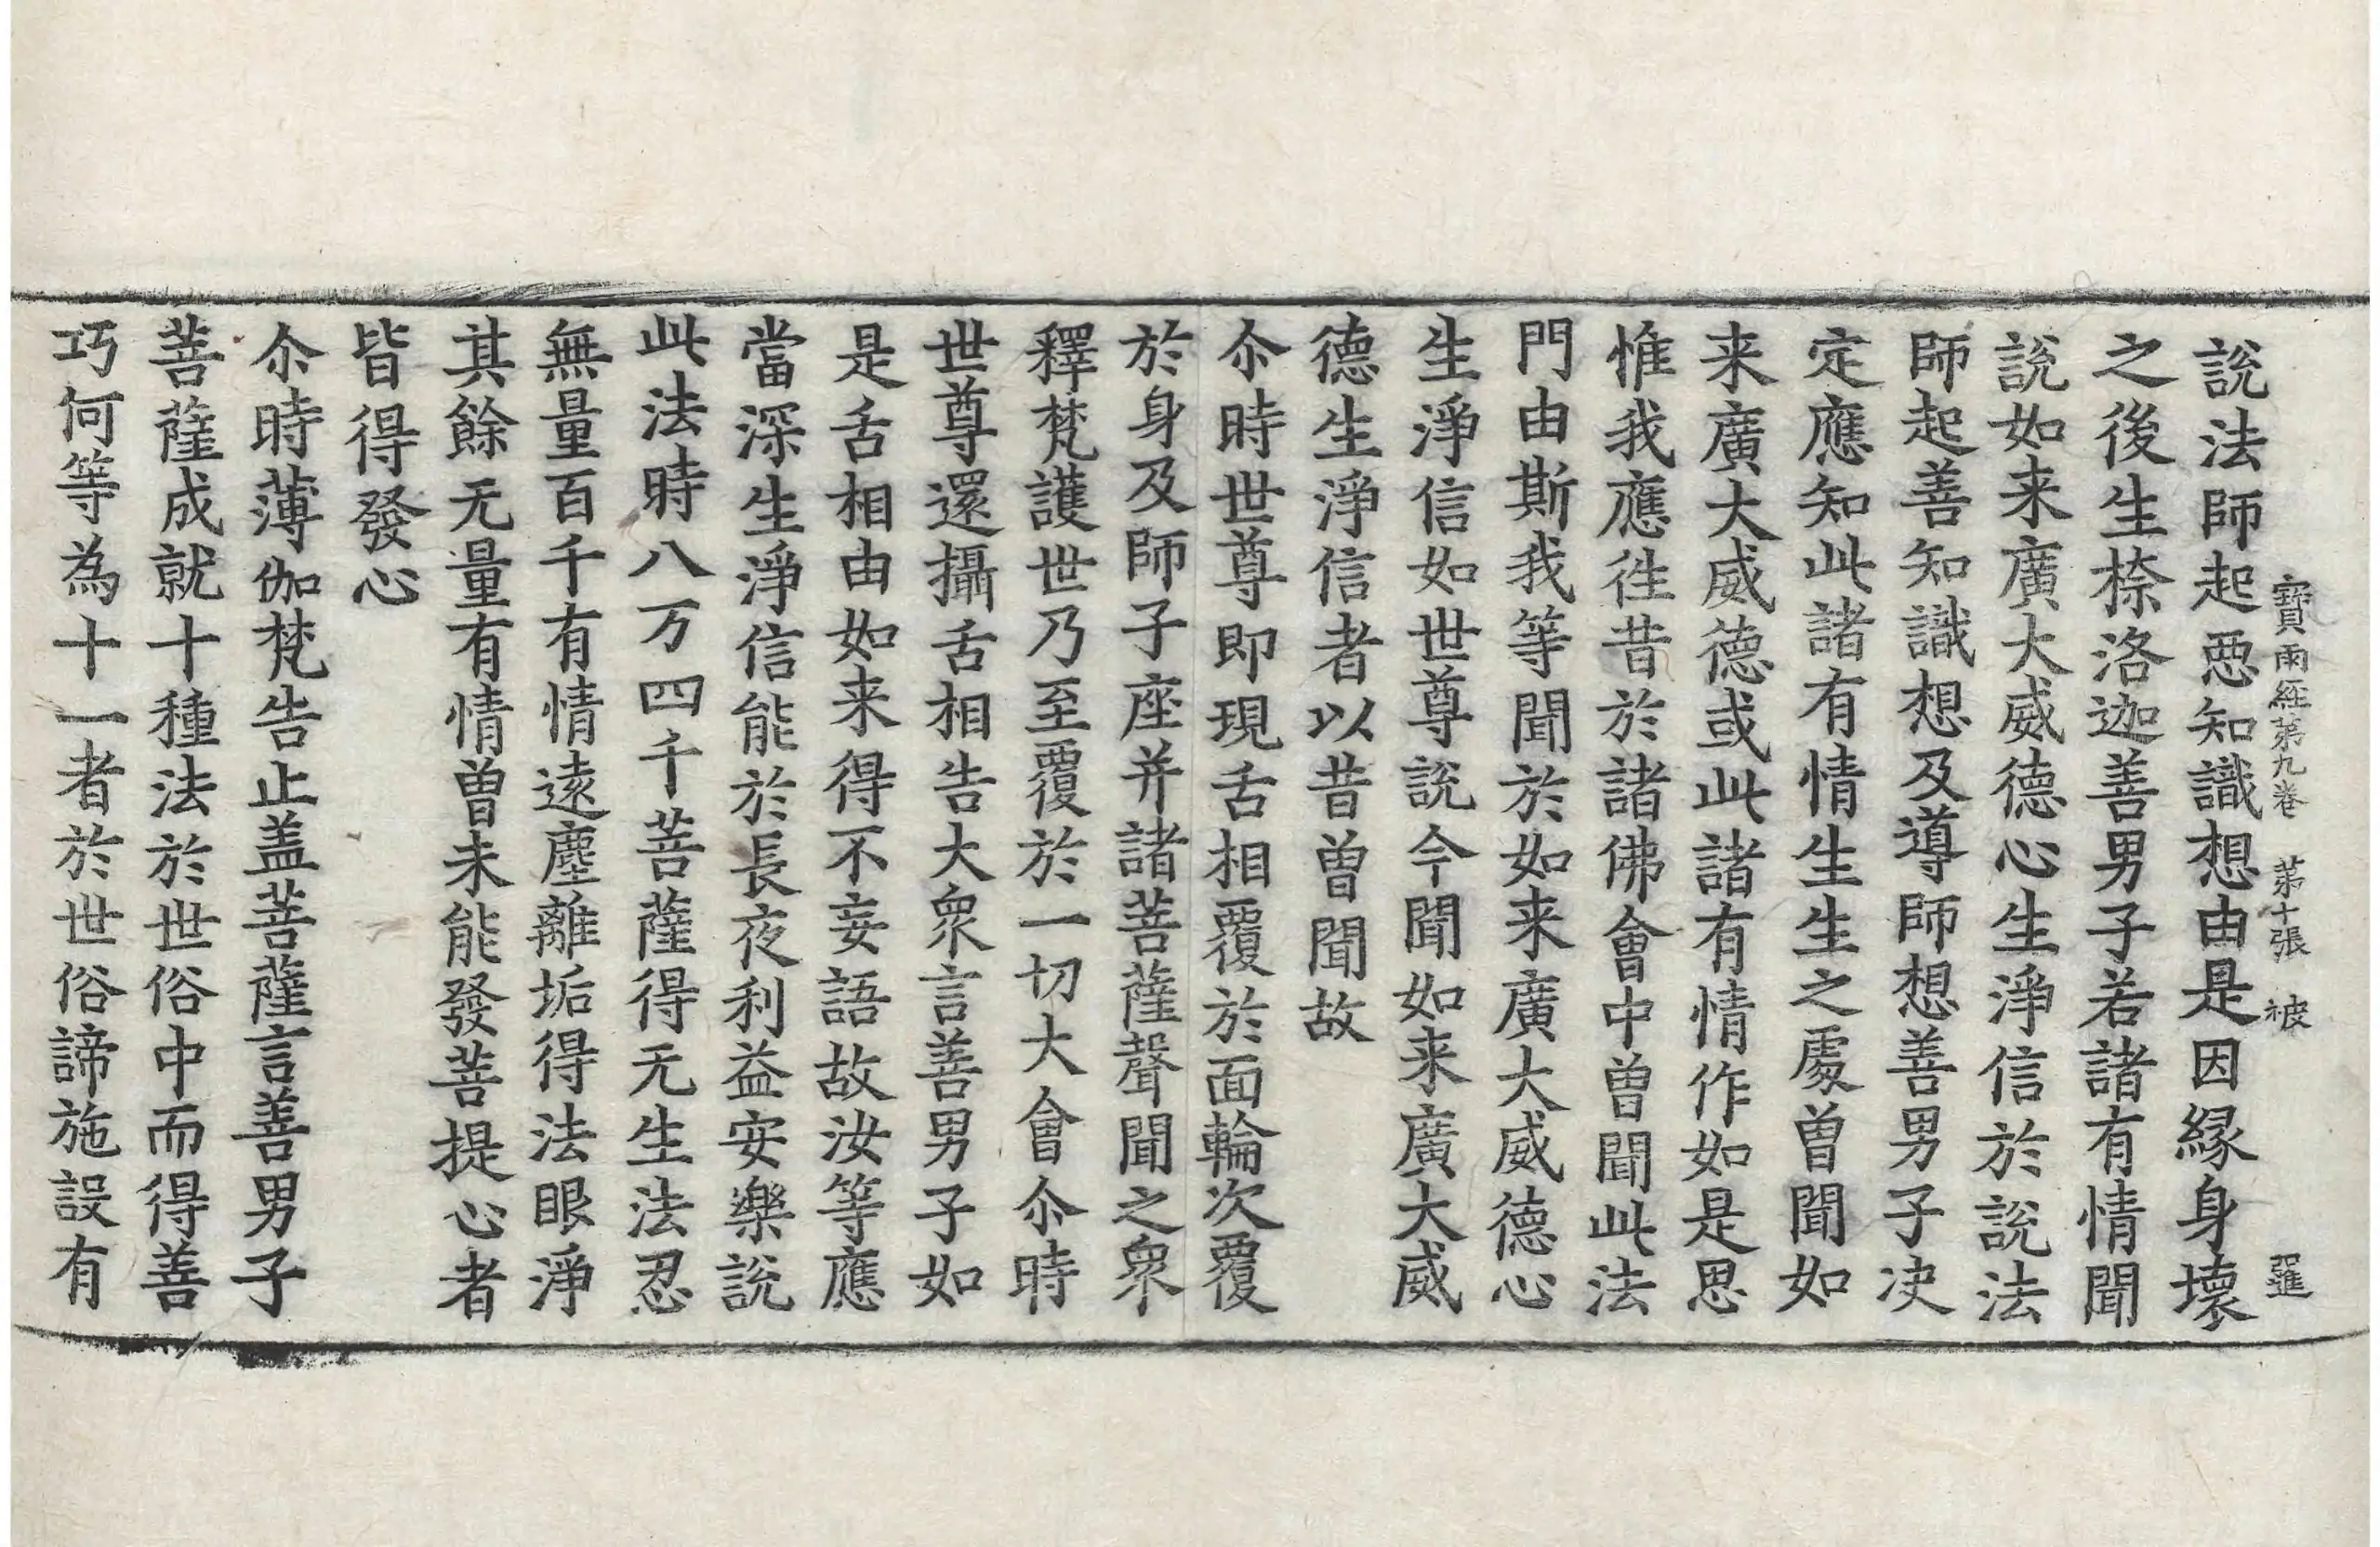 寶雨經苐九卷 苐十張 被
說法師起惡知識想由是因縁身壞
之後生㮈洛迦善男子若諸有情聞
說如来廣大威德心生淨信於說法
師起善知識想及導師想善男子决
定應知此諸有情生生之處曽聞如
来廣大威德或此諸有情作如是思
惟我應徃昔於諸佛會中曽聞此法
門由斯我等聞於如来廣大威德心
生淨信如世尊說今聞如来廣大威
德生淨信者以昔曽聞故
尒時世尊即現舌相覆於面輪次覆
於身及師子座并諸菩薩聲聞之衆
釋梵護世乃至覆於一切大會尒時
世尊還攝舌相告大衆言善男子如
是舌相由如来得不妄語故汝等應
當深生淨信能於長夜利益安樂說
此法時八万四千菩薩得无生法忍
無量百千有情遠塵離垢得法眼淨
其餘无量有情曽未能發菩提心者
皆得發心
尒時薄伽梵告止盖菩薩言善男子
菩薩成就十種法於世俗中而得善
巧何等為十一者於世俗諦施設有